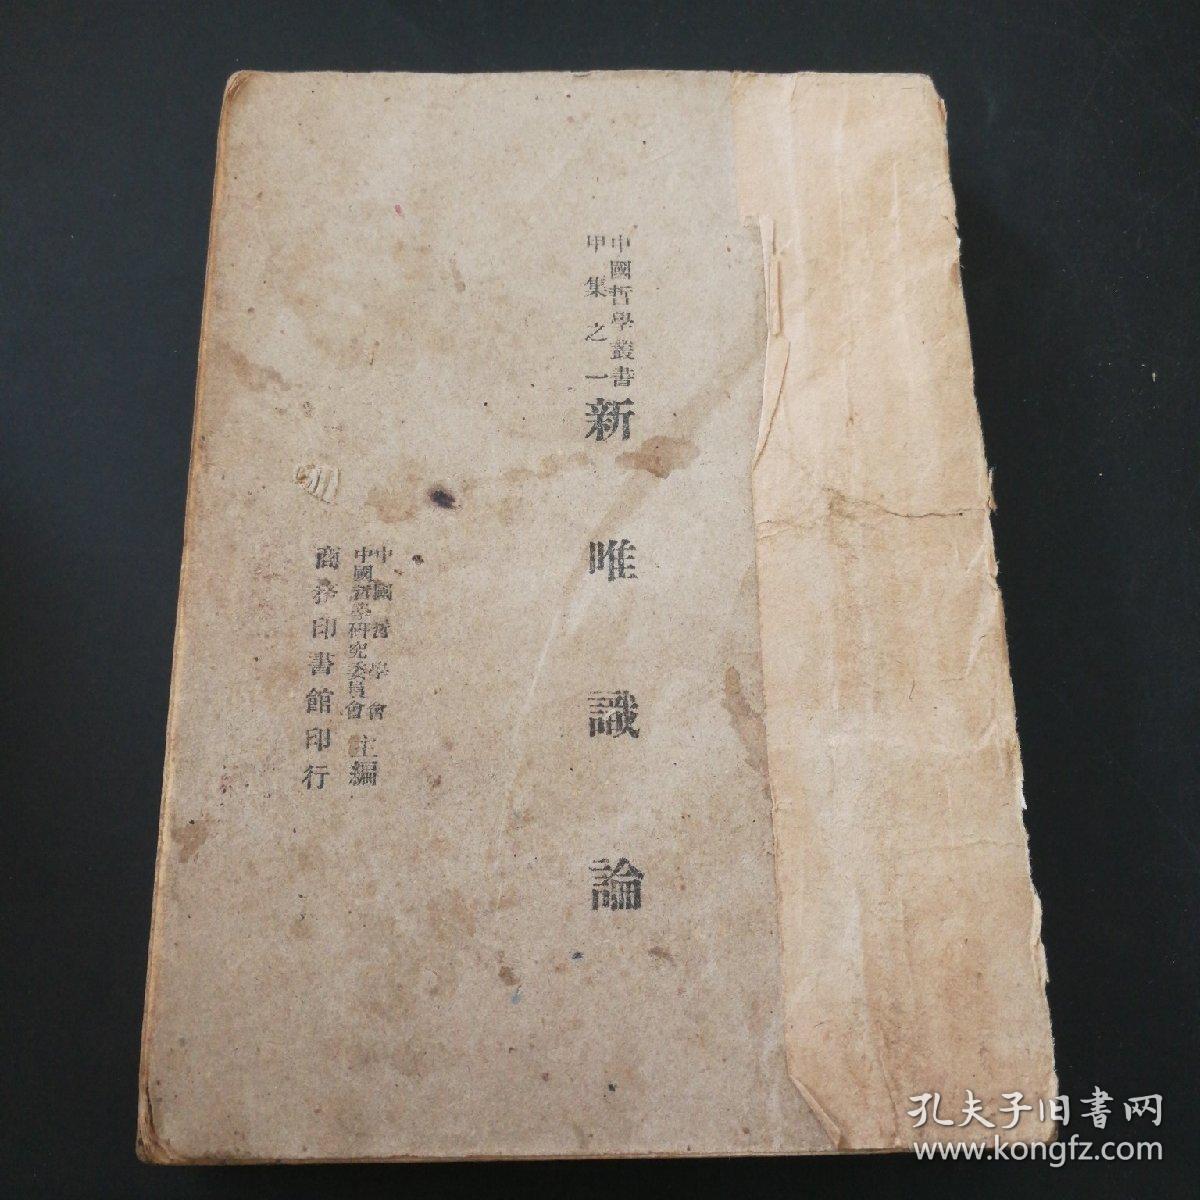 中國哲學叢書
甲集之一
新唯識論
中國哲學會
中國哲學研究委員會
主編
商務印書館印行
孔夫子旧書网
www.kongfz.com